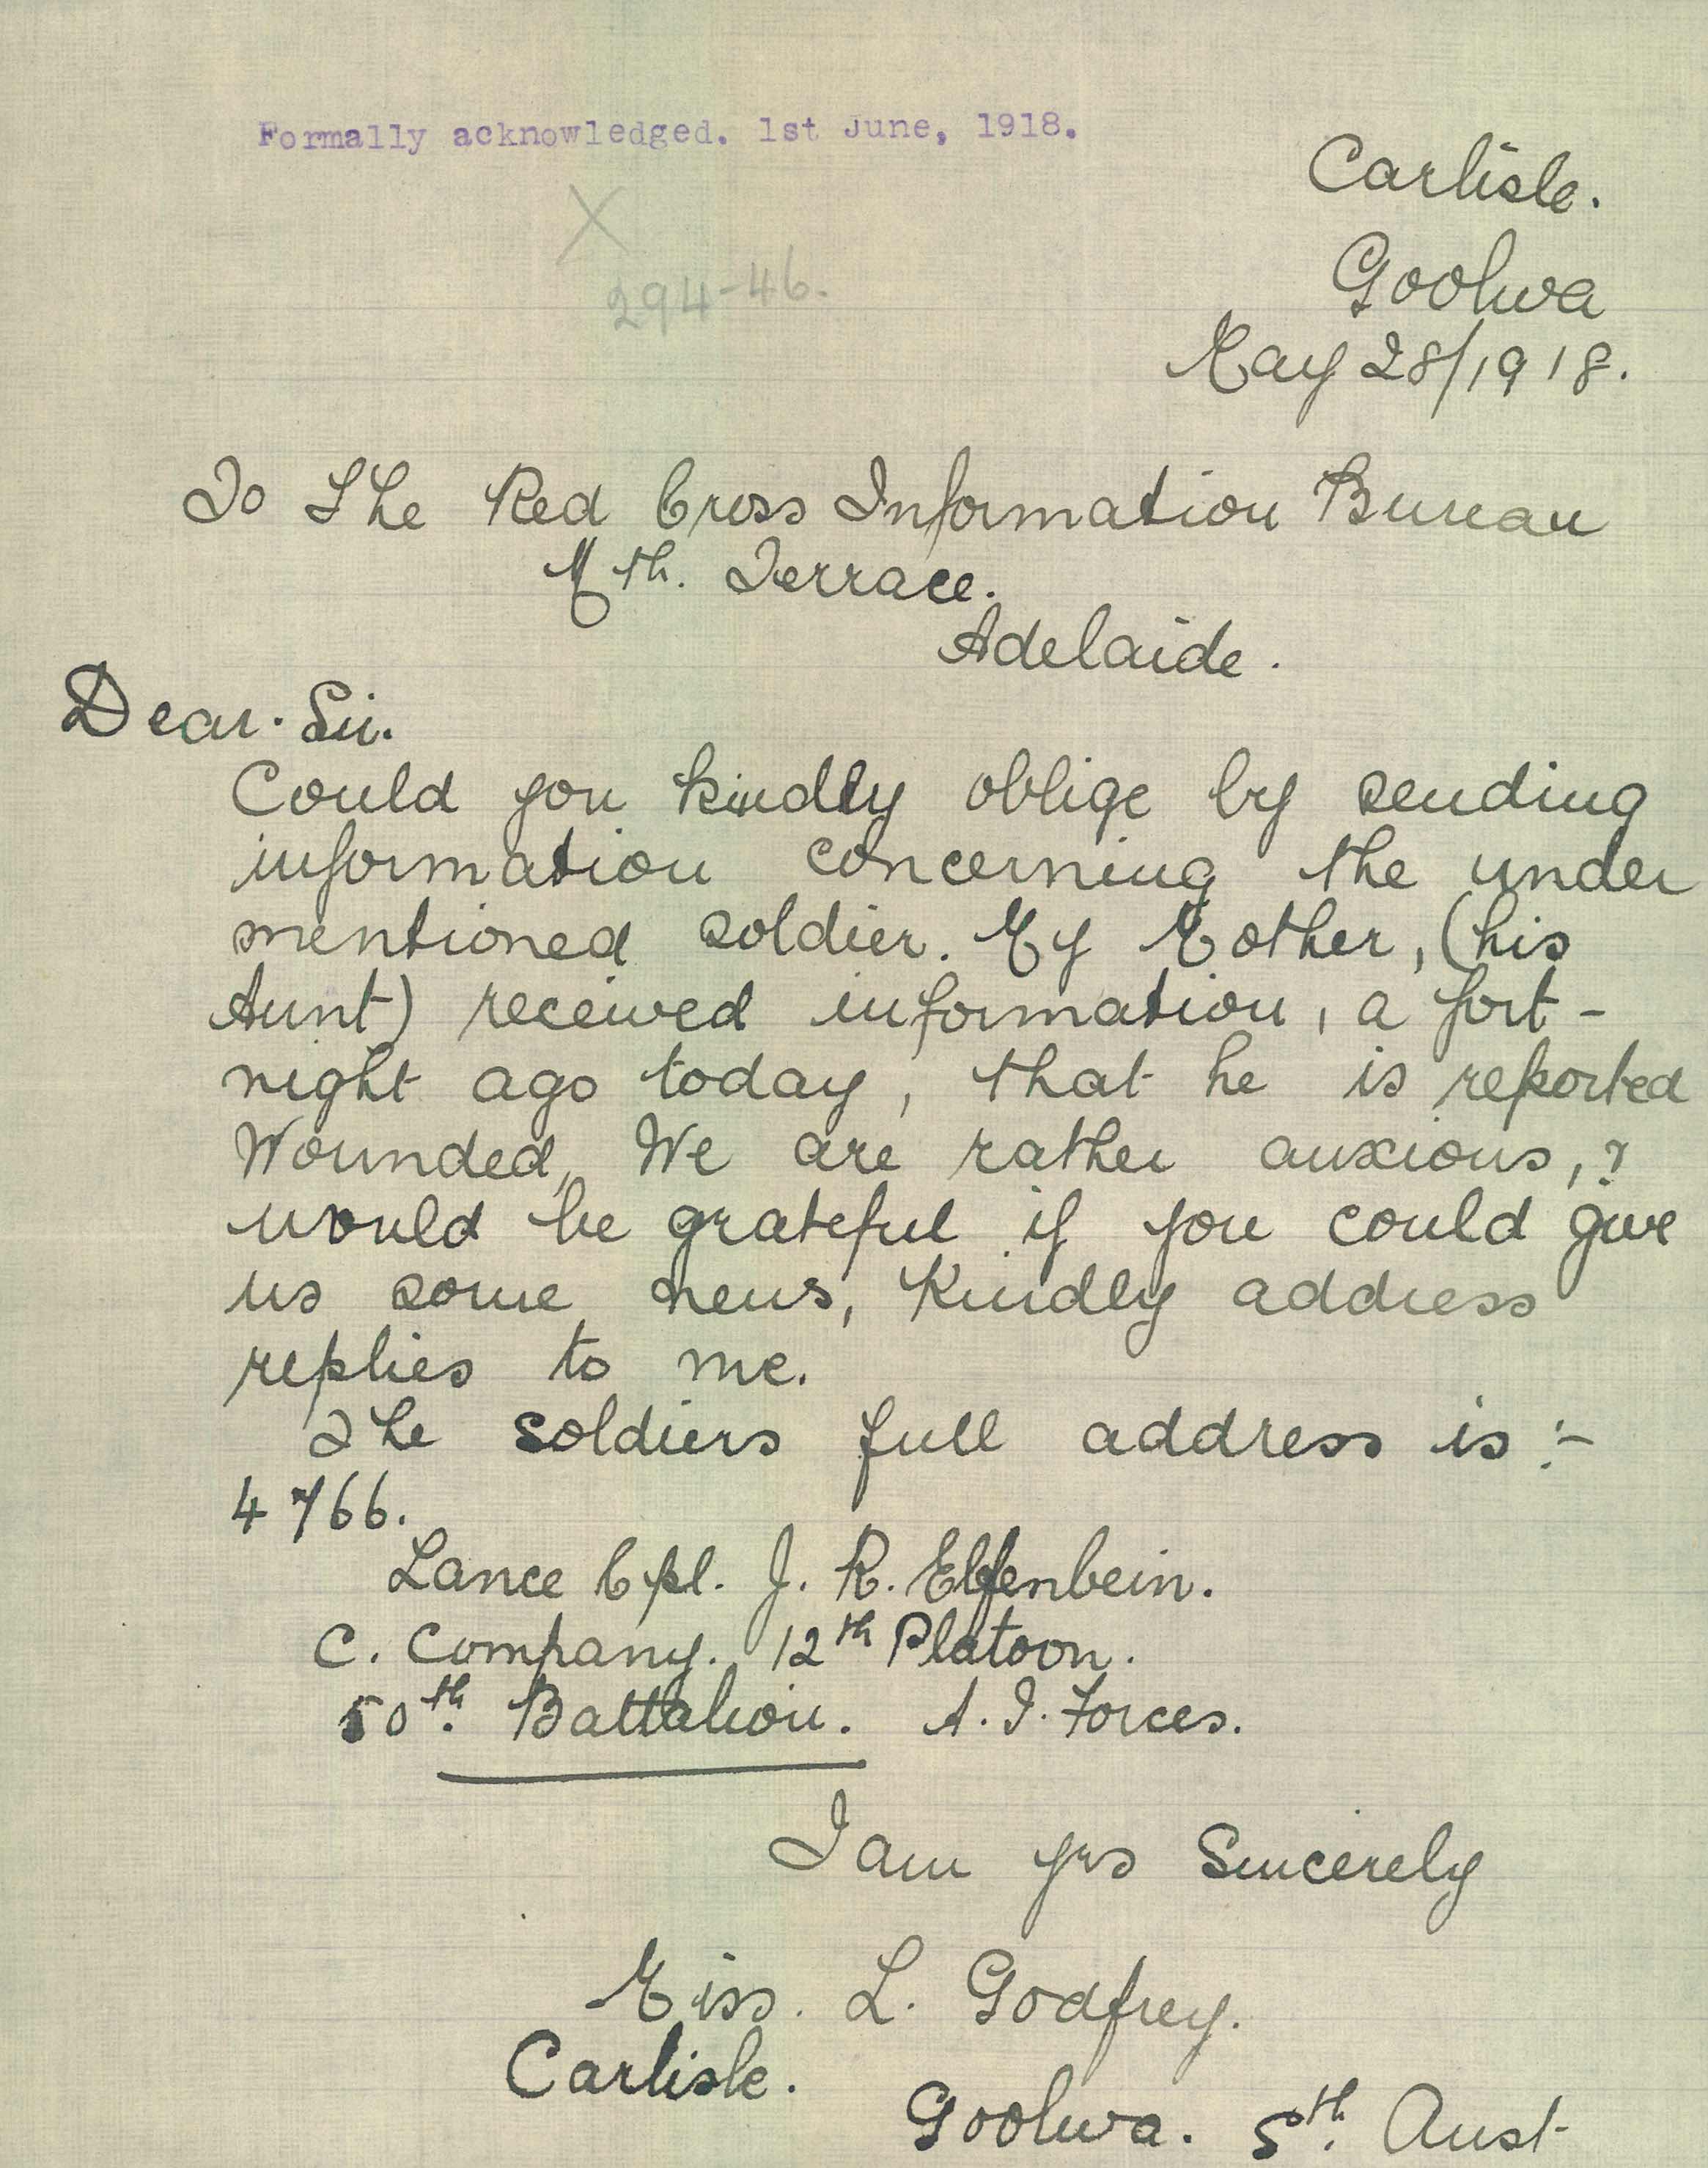 Formally acknowledged. 1st June, 1918.
X
294-46.
Carlisle.
Goolwa
May 28/1918.
To The Red Cross Information Bureau
Nth. Terrace.
Adelaide.
Dear Sir.
Could you kindly oblige by sending
information concerning the under
mentioned soldier. My Mother, (his
Aunt) received information, a fort-
night ago today, that he is reported
Wounded, We are rather anxious, &
would be grateful if you could give
us some news, Kindly address
replies to me.
The soldiers full address is :-
4766.
Lance Cpl. J. R. Elfenbein.
C. Company. 12th Platoon.
50th. Battalion. A. I. Forces.
I am yrs Sincerely
Miss. L. Godfrey.
Carlisle.
Goolwa. Sth. Aust